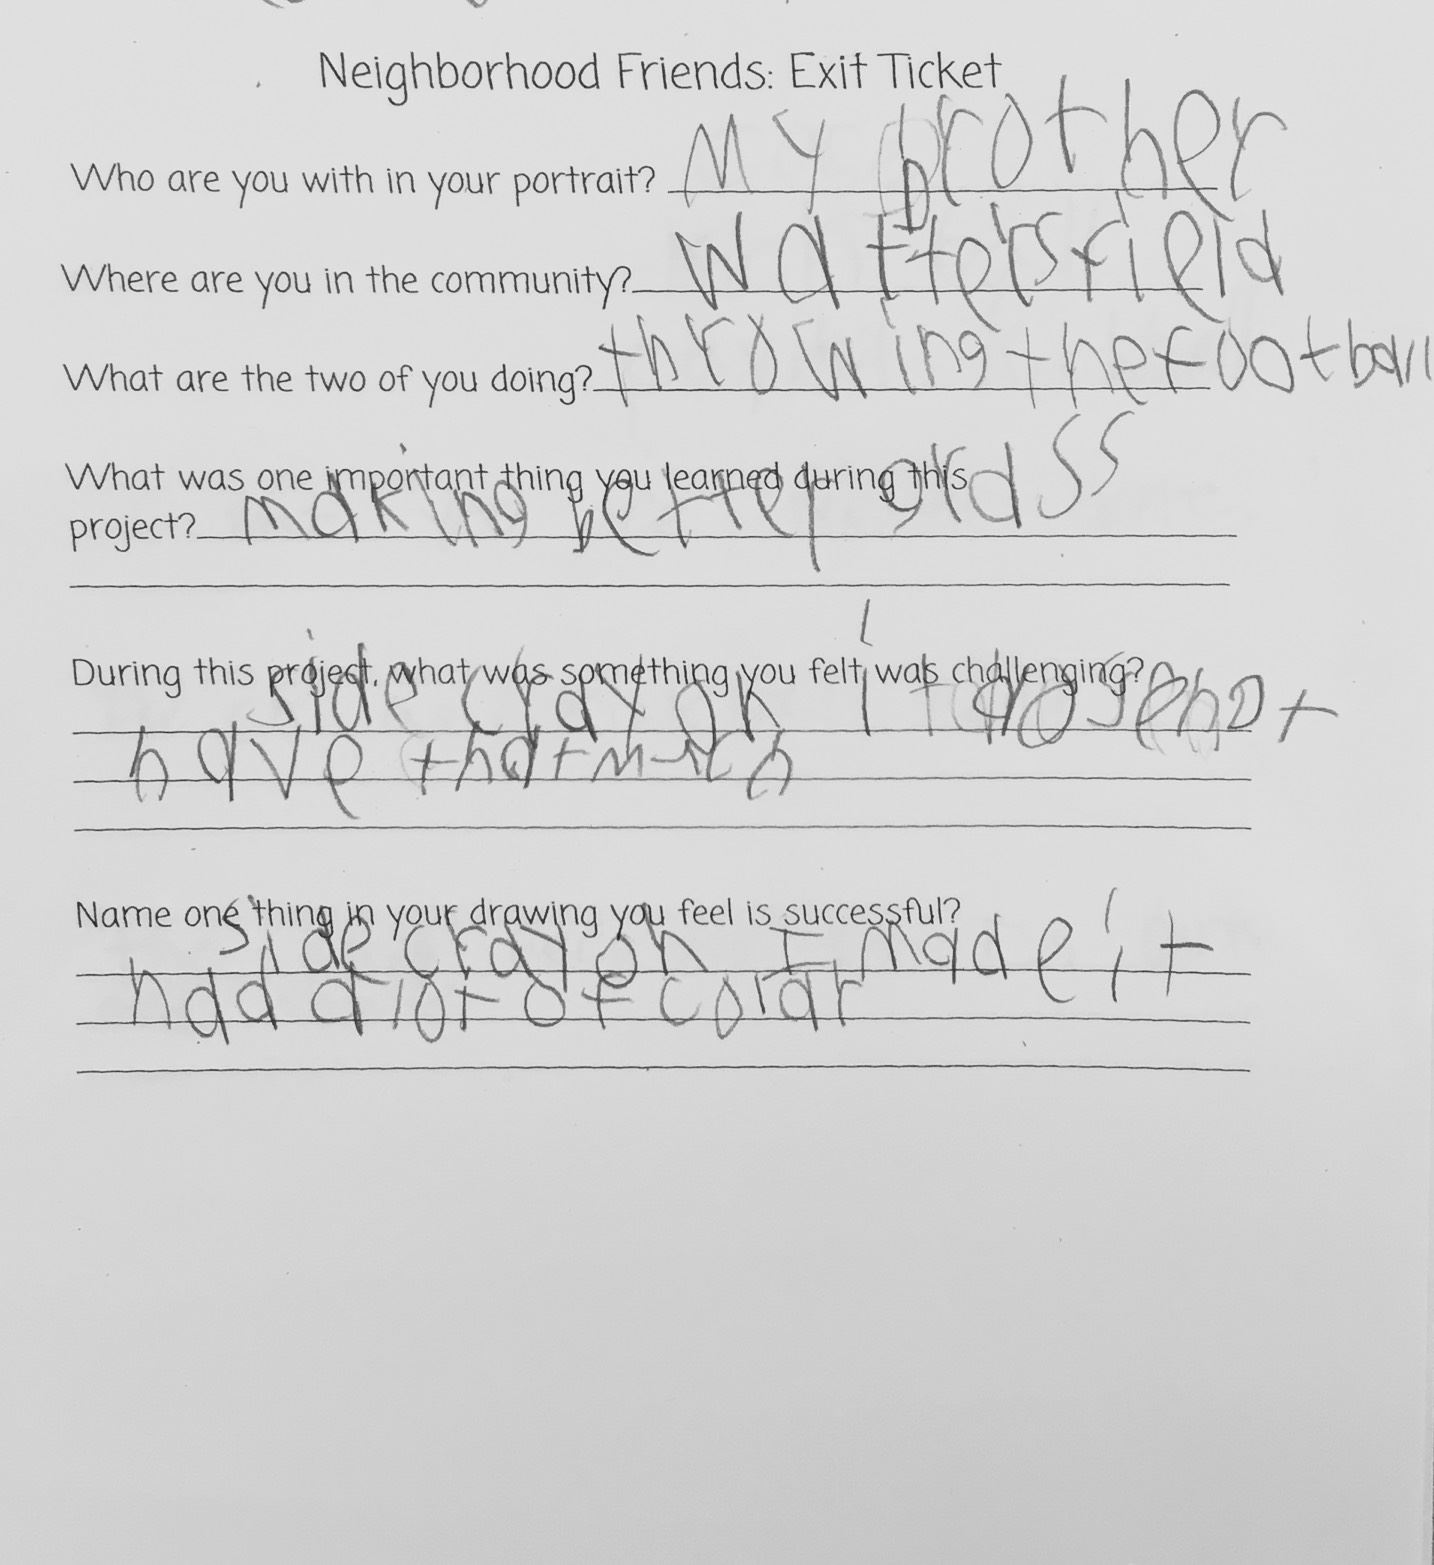 Neighborhood Friends: Exit Ticket
Who are you with in your portrait? My brother
Where are you in the community? Wattersfield
What are the two of you doing? throwing the football
What was one important thing you learned during this
project? making better grass
During this project, what was something you felt was challenging?
side crayon it dose not
have that much
Name one thing in your drawing you feel is successful?
side crayon I made it
had a lot of colar